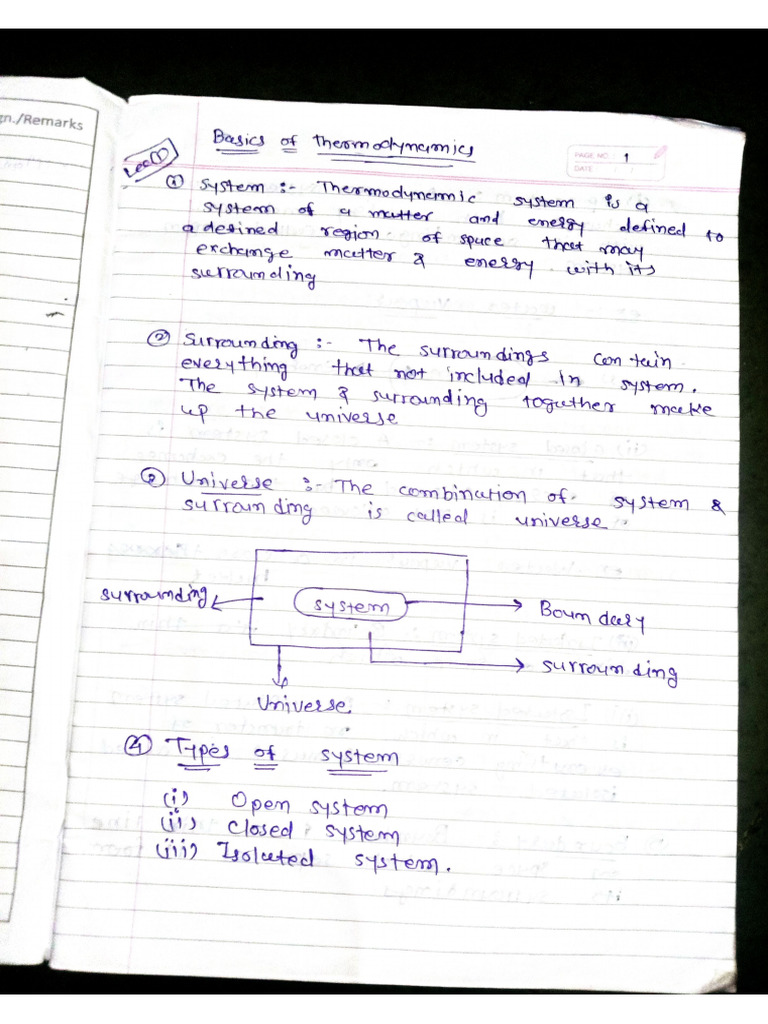 gn./Remarks
Basics of Thermodynamics
PAGE NO. 1
DATE / /
Lec ①
① System :- Thermodynamic system is a
system of a matter and energy defined to
a desined region of space that may
exchange matter & energy with its
surrounding
② Surrounding :- The surroundings contain
everything that not included in system.
The system & surrounding together make
up the universe
② Universe :- The combination of system &
surrounding is called universe
surrounding
system
Boundary
surrounding
Universe
④ Types of system
(i) Open system
(ii) closed system
(iii) Isolated system.